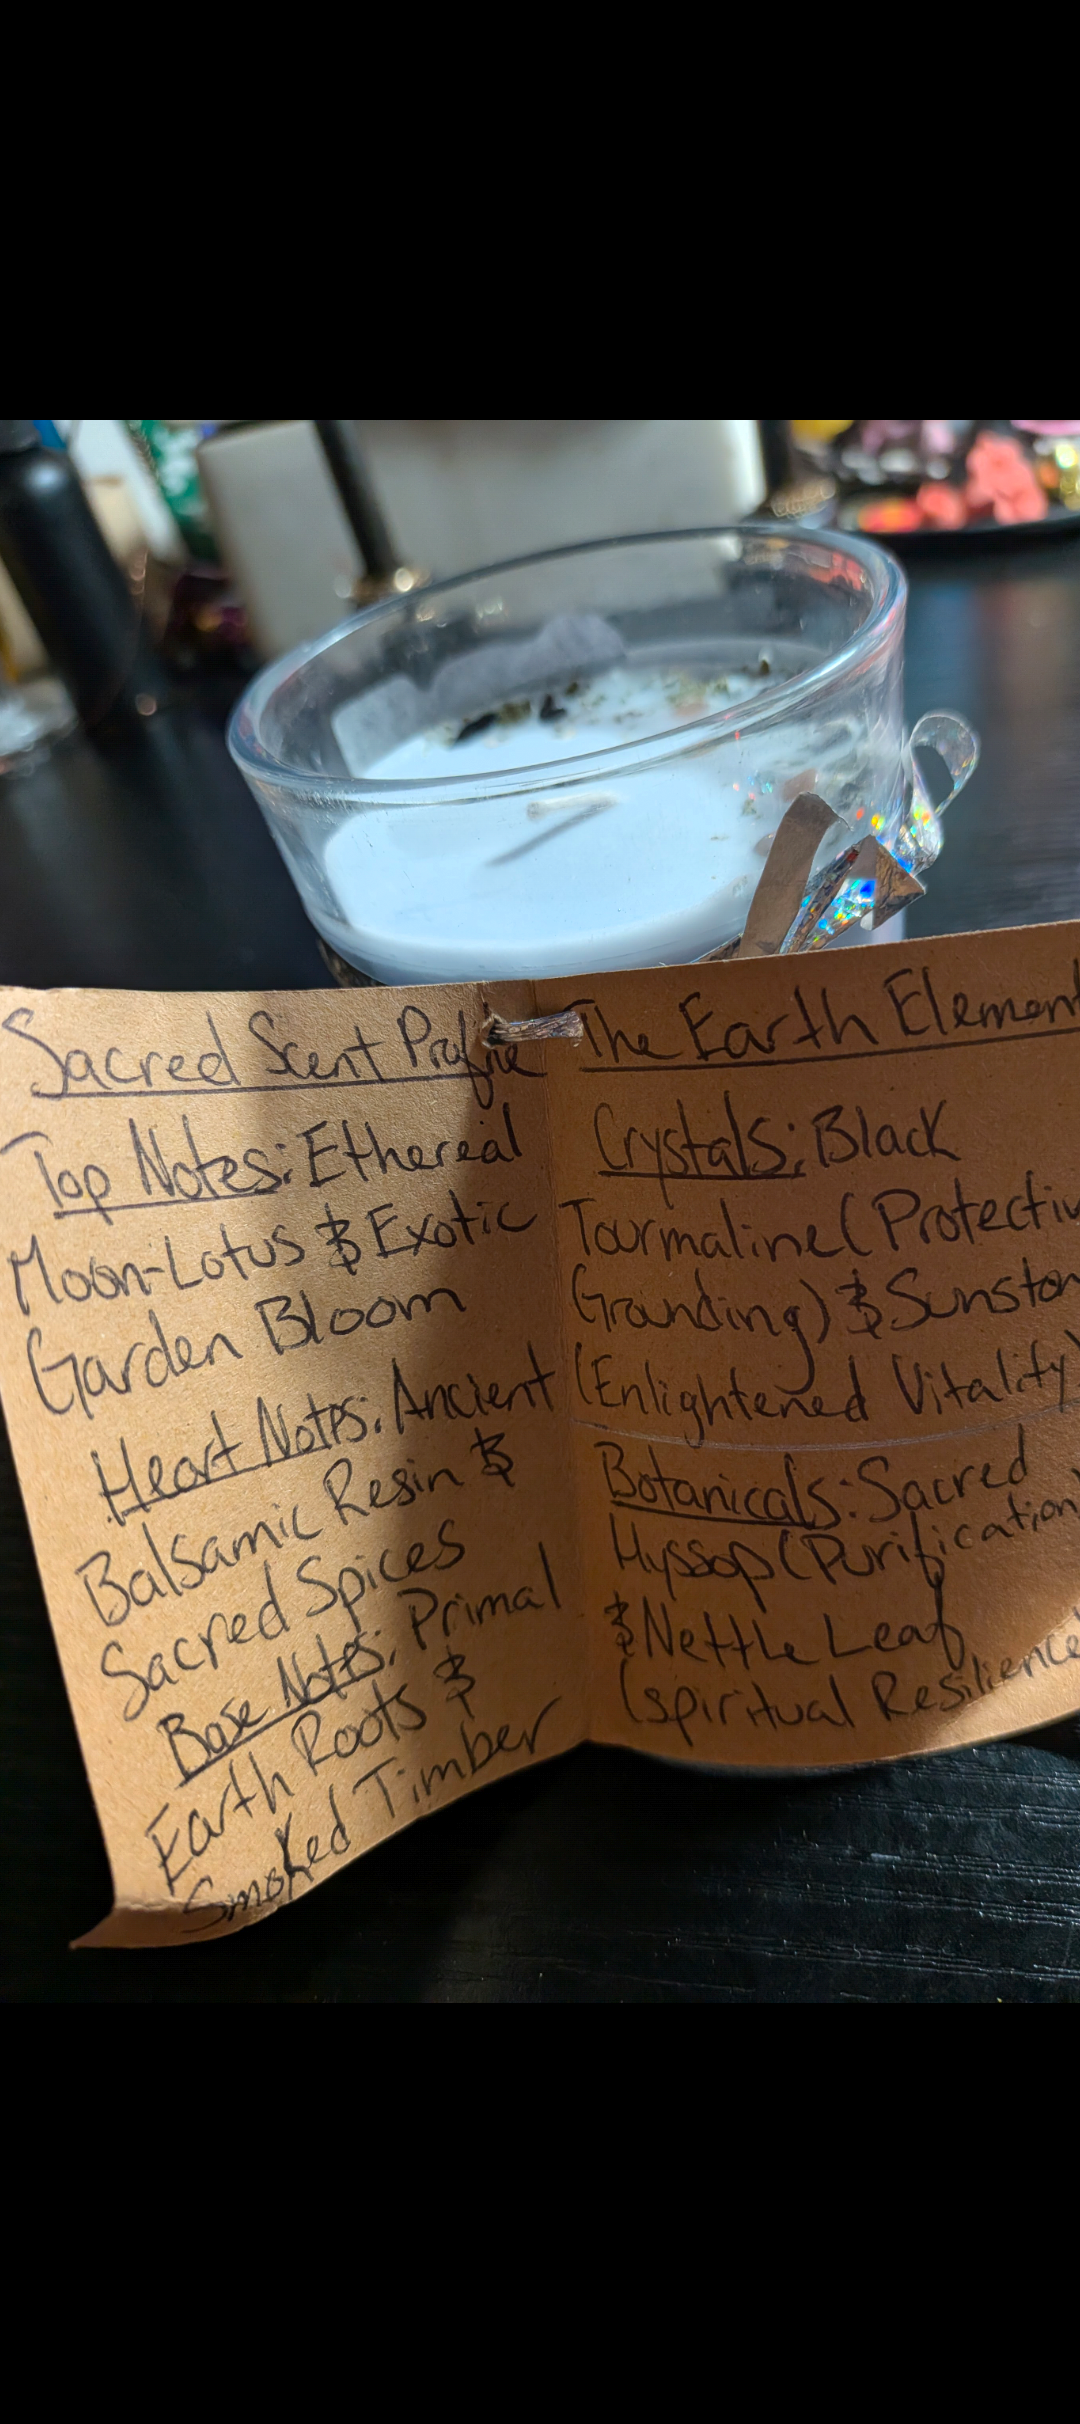 Sacred Scent Profile
Top Notes: Ethereal
Moon-Lotus & Exotic
Garden Bloom
Heart Notes: Ancient
Balsamic Resin &
Sacred Spices
Base Notes: Primal
Earth Roots &
Smoked Timber
The Earth Element
Crystals: Black
Tourmaline (Protectiv
Grounding) & Sunston
(Enlightened Vitality)
Botanicals: Sacred
Hyssop (Purification)
& Nettle Leaf
(spiritual Resilience